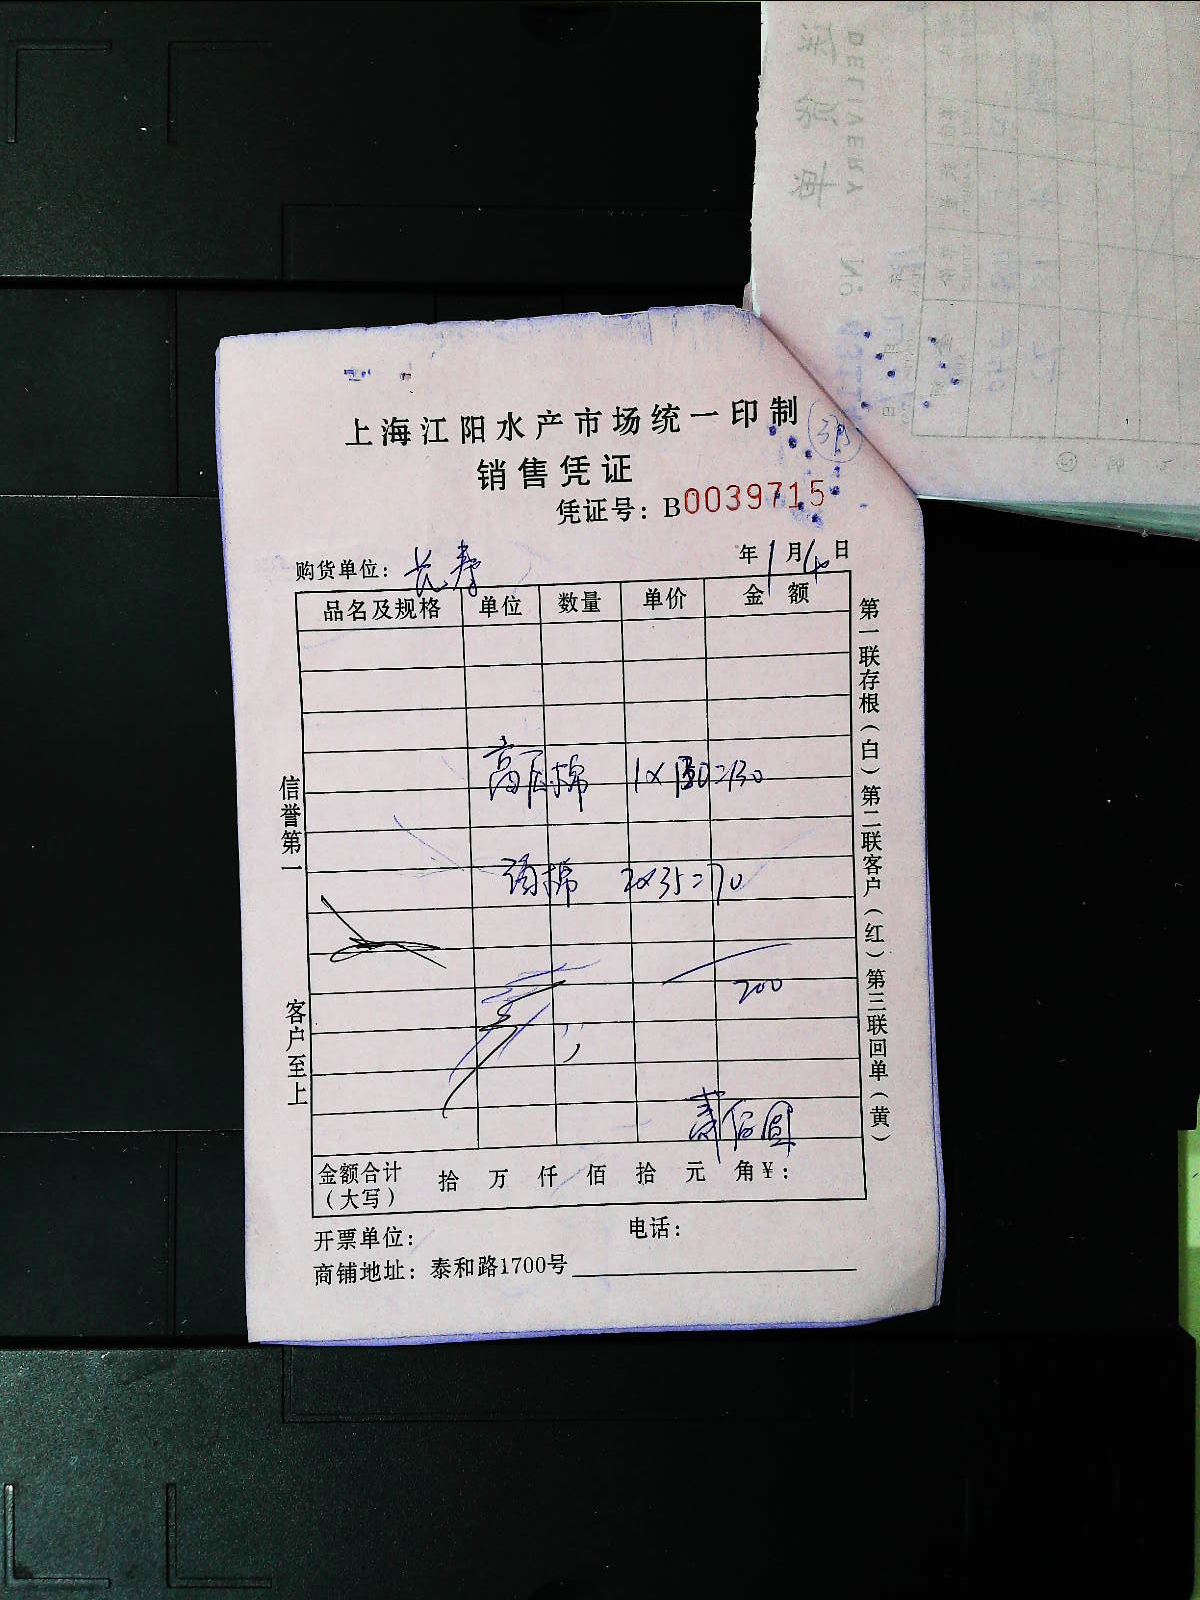 上海江阳水产市场统一印制
销售凭证
凭证号：B0039715
购货单位：长寿 年1月4日
品名及规格 单位 数量 单价 金额
1×130=130
棉 2×35=70
200
贰佰圆
金额合计（大写） 拾 万 仟 佰 拾 元 角 ¥：
开票单位： 电话：
商铺地址：泰和路1700号
信誉第一 客户至上
第一联存根（白）第二联客户（红）第三联回单（黄）
DELIVERY No